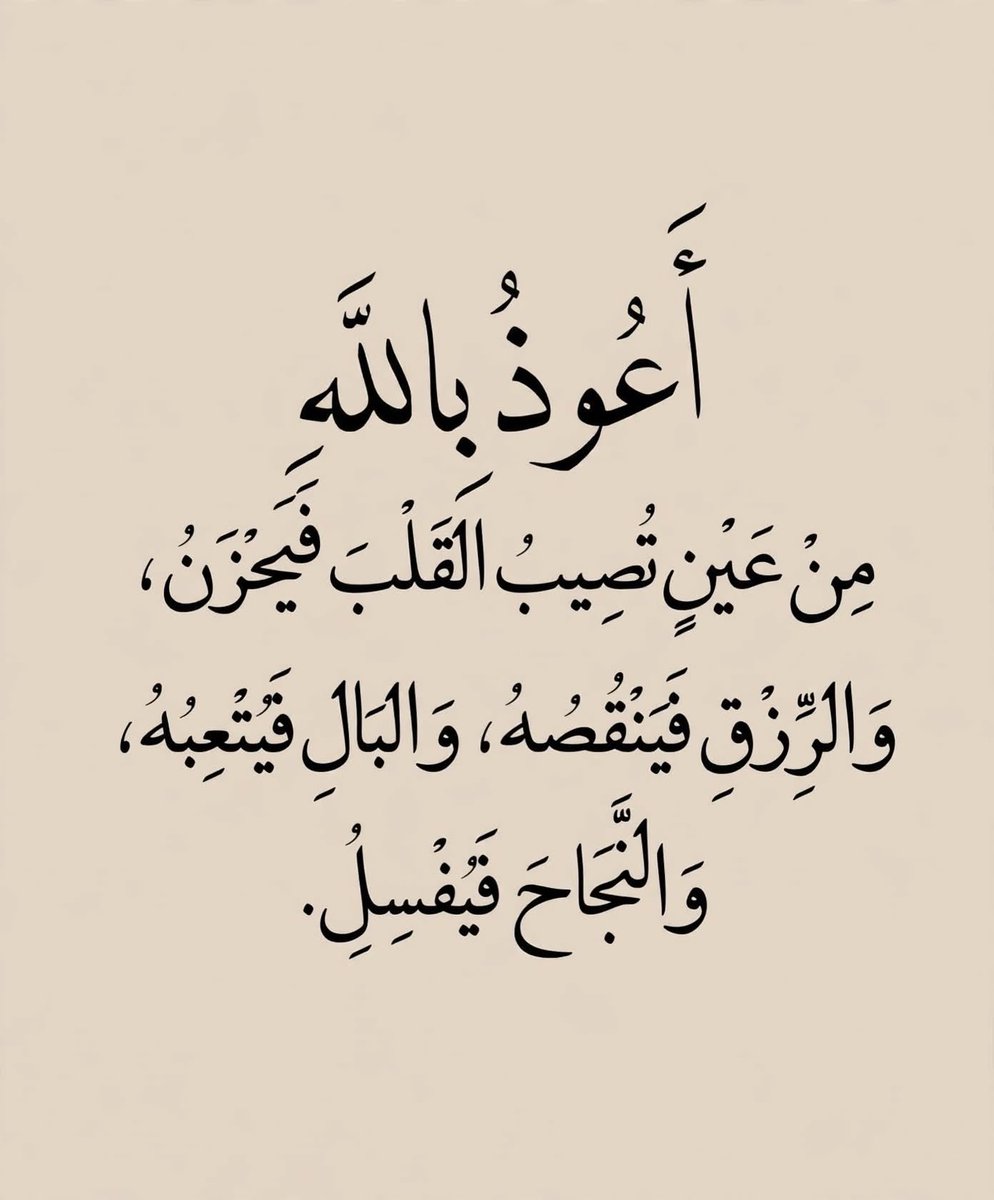 أَعُوذُ بِاللَّهِ
مِنْ عَيْنٍ تُصِيبُ القَلْبَ فَيَحْزَنُ،
وَالرِّزْقِ فَيَنْقُصُهُ، وَالبَالِ فَيُتْعِبُهُ،
وَالنَّجَاحَ فَيُفْسِلُِ.